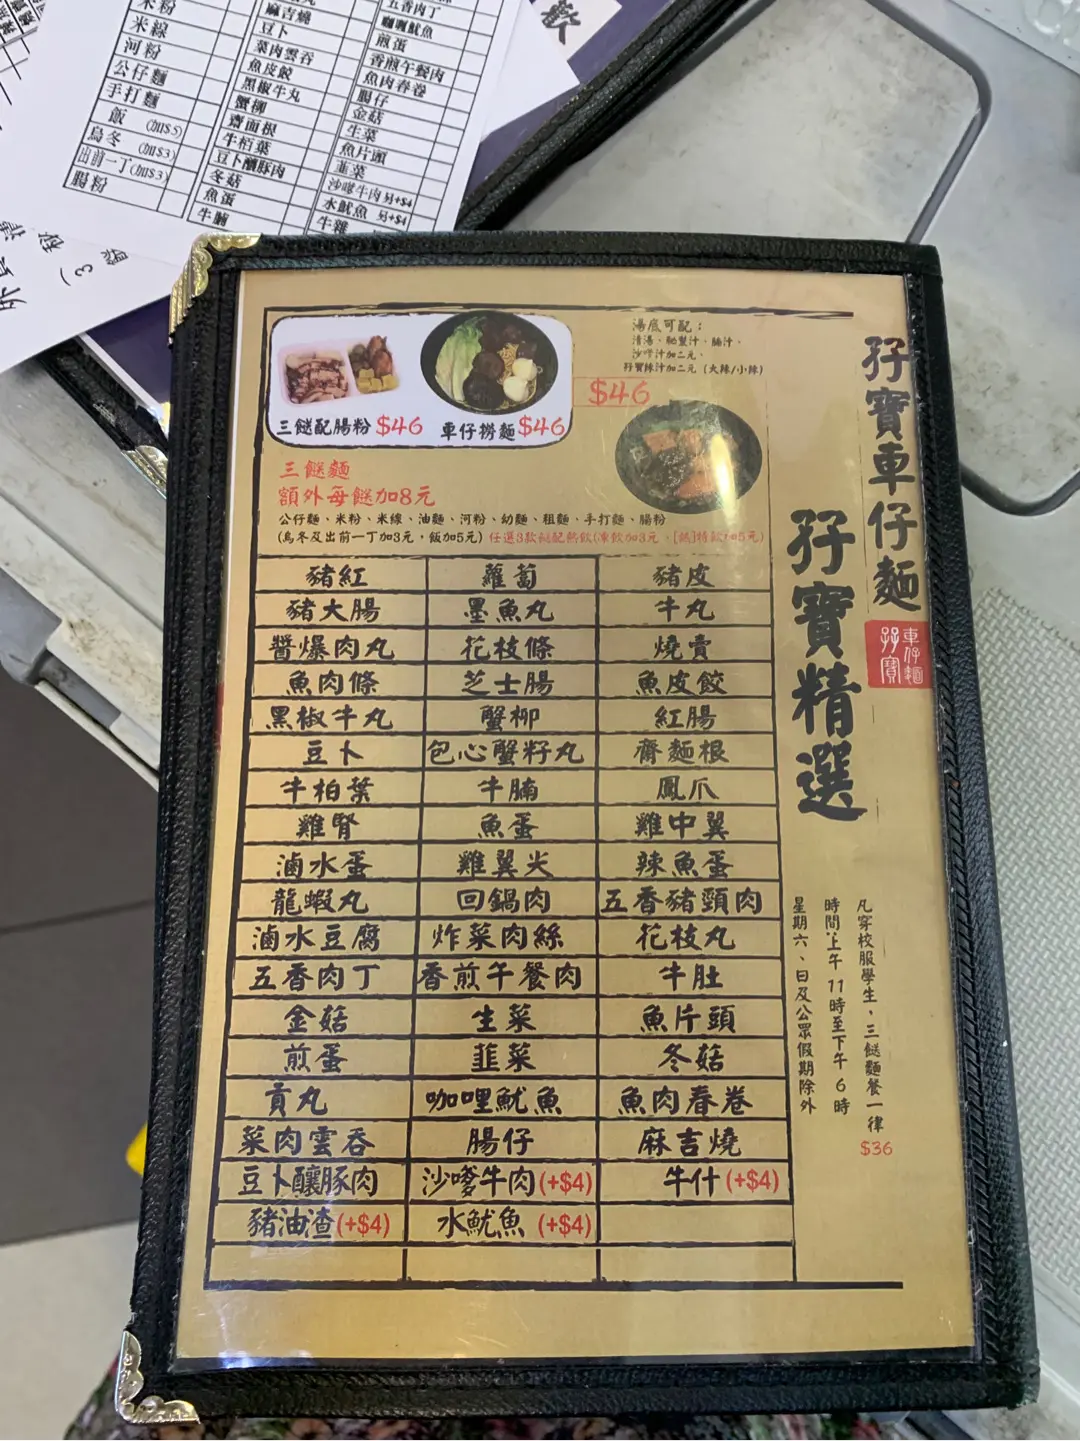 米粉
米線
河粉
公仔麵
手打麵
飯 (加$5)
烏冬 (加$3)
出前一丁(加$3)
腸粉
麻吉燒
豆卜
菜肉雲吞
魚皮餃
黑椒牛丸
蟹柳
齋面根
牛栢葉
豆卜釀豚肉
冬菇
魚蛋
牛腩
五香肉丁
咖喱魷魚
煎蛋
香煎午餐肉
魚肉春卷
腸仔
金菇
生菜
魚片頭
韮菜
沙嗲牛肉 另+$4
水魷魚 另+$4
牛雜
孖寶車仔麵
孖寶精選
車仔麵
孖寶
湯底可配：
清湯、秘製汁、腩汁、
沙嗲汁加二元、
孖寶辣汁加二元（大辣/小辣）
$46
三餸配腸粉 $46 車仔撈麵 $46
三餸麵
額外每餸加8元
公仔麵、米粉、米線、油麵、河粉、幼麵、粗麵、手打麵、腸粉
(烏冬及出前一丁加3元，飯加5元) 任選3款餸配熱飲(凍飲加3元
豬紅 蘿蔔 豬皮
豬大腸 墨魚丸 牛丸
醬爆肉丸 花枝條 燒賣
魚肉條 芝士腸 魚皮餃
黑椒牛丸 蟹柳 紅腸
豆卜 包心蟹籽丸 齋麵根
牛柏葉 牛腩 鳳爪
雞腎 魚蛋 雞中翼
滷水蛋 雞翼尖 辣魚蛋
龍蝦丸 回鍋肉 五香豬頸肉
滷水豆腐 炸菜肉絲 花枝丸
五香肉丁 香煎午餐肉 牛肚
金菇 生菜 魚片頭
煎蛋 韮菜 冬菇
貢丸 咖哩魷魚 魚肉春卷
菜肉雲吞 腸仔 麻吉燒
豆卜釀豚肉 沙嗲牛肉(+$4) 牛什(+$4)
豬油渣(+$4) 水魷魚(+$4)
凡穿校服學生，三餸麵餐一律 $36
時間：上午11時至下午6時
星期六、日及公眾假期除外